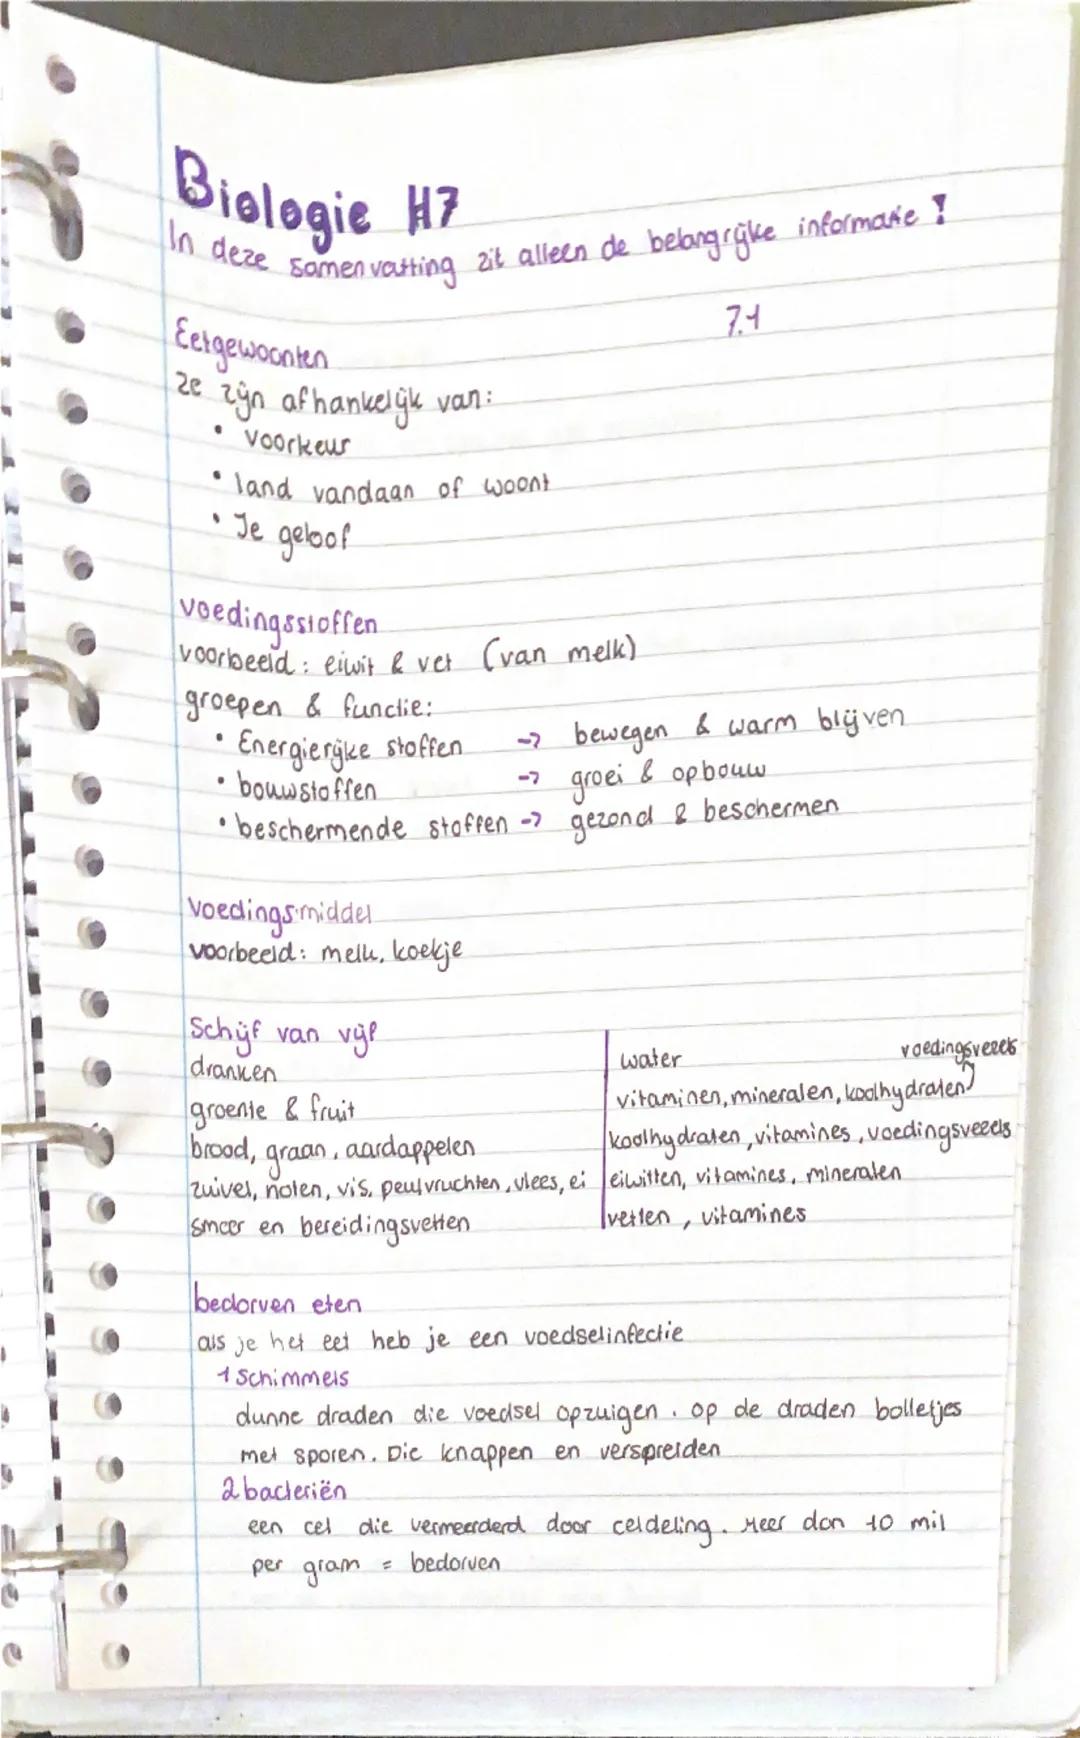 Biologie H7
In deze samenvatting zit alleen de belangrijke informatie !
7.1
Eetgewoonten
ze zijn afhankelijk van:
• voorkeur
• land vandaan of woont
• Je geloof
voedingsstoffen
voorbeeld: eiwit & vet (van melk)
groepen & functie:
• Energierijke stoffen -> bewegen & warm blijven
• bouwstoffen -> groei & opbouw
• beschermende stoffen -> gezond & beschermen
Voedingsmiddel
voorbeeld: melk, koekje
Schijf van vijf
dranken | water
groente & fruit | vitaminen, mineralen, koolhydraten, voedingsvezels
brood, graan, aardappelen | koolhydraten, vitamines, voedingsvezels
zuivel, noten, vis, peulvruchten, vlees, ei | eiwitten, vitamines, mineralen
smeer en bereidingsvetten | vetten, vitamines
bedorven eten
als je het eet heb je een voedselinfectie
1 Schimmels
dunne draden die voedsel opzuigen. op de draden bolletjes
met sporen. Die knappen en verspreiden
2 bacteriën
een cel die vermeerderd door celdeling. Meer dan 10 mil
per gram = bedorven